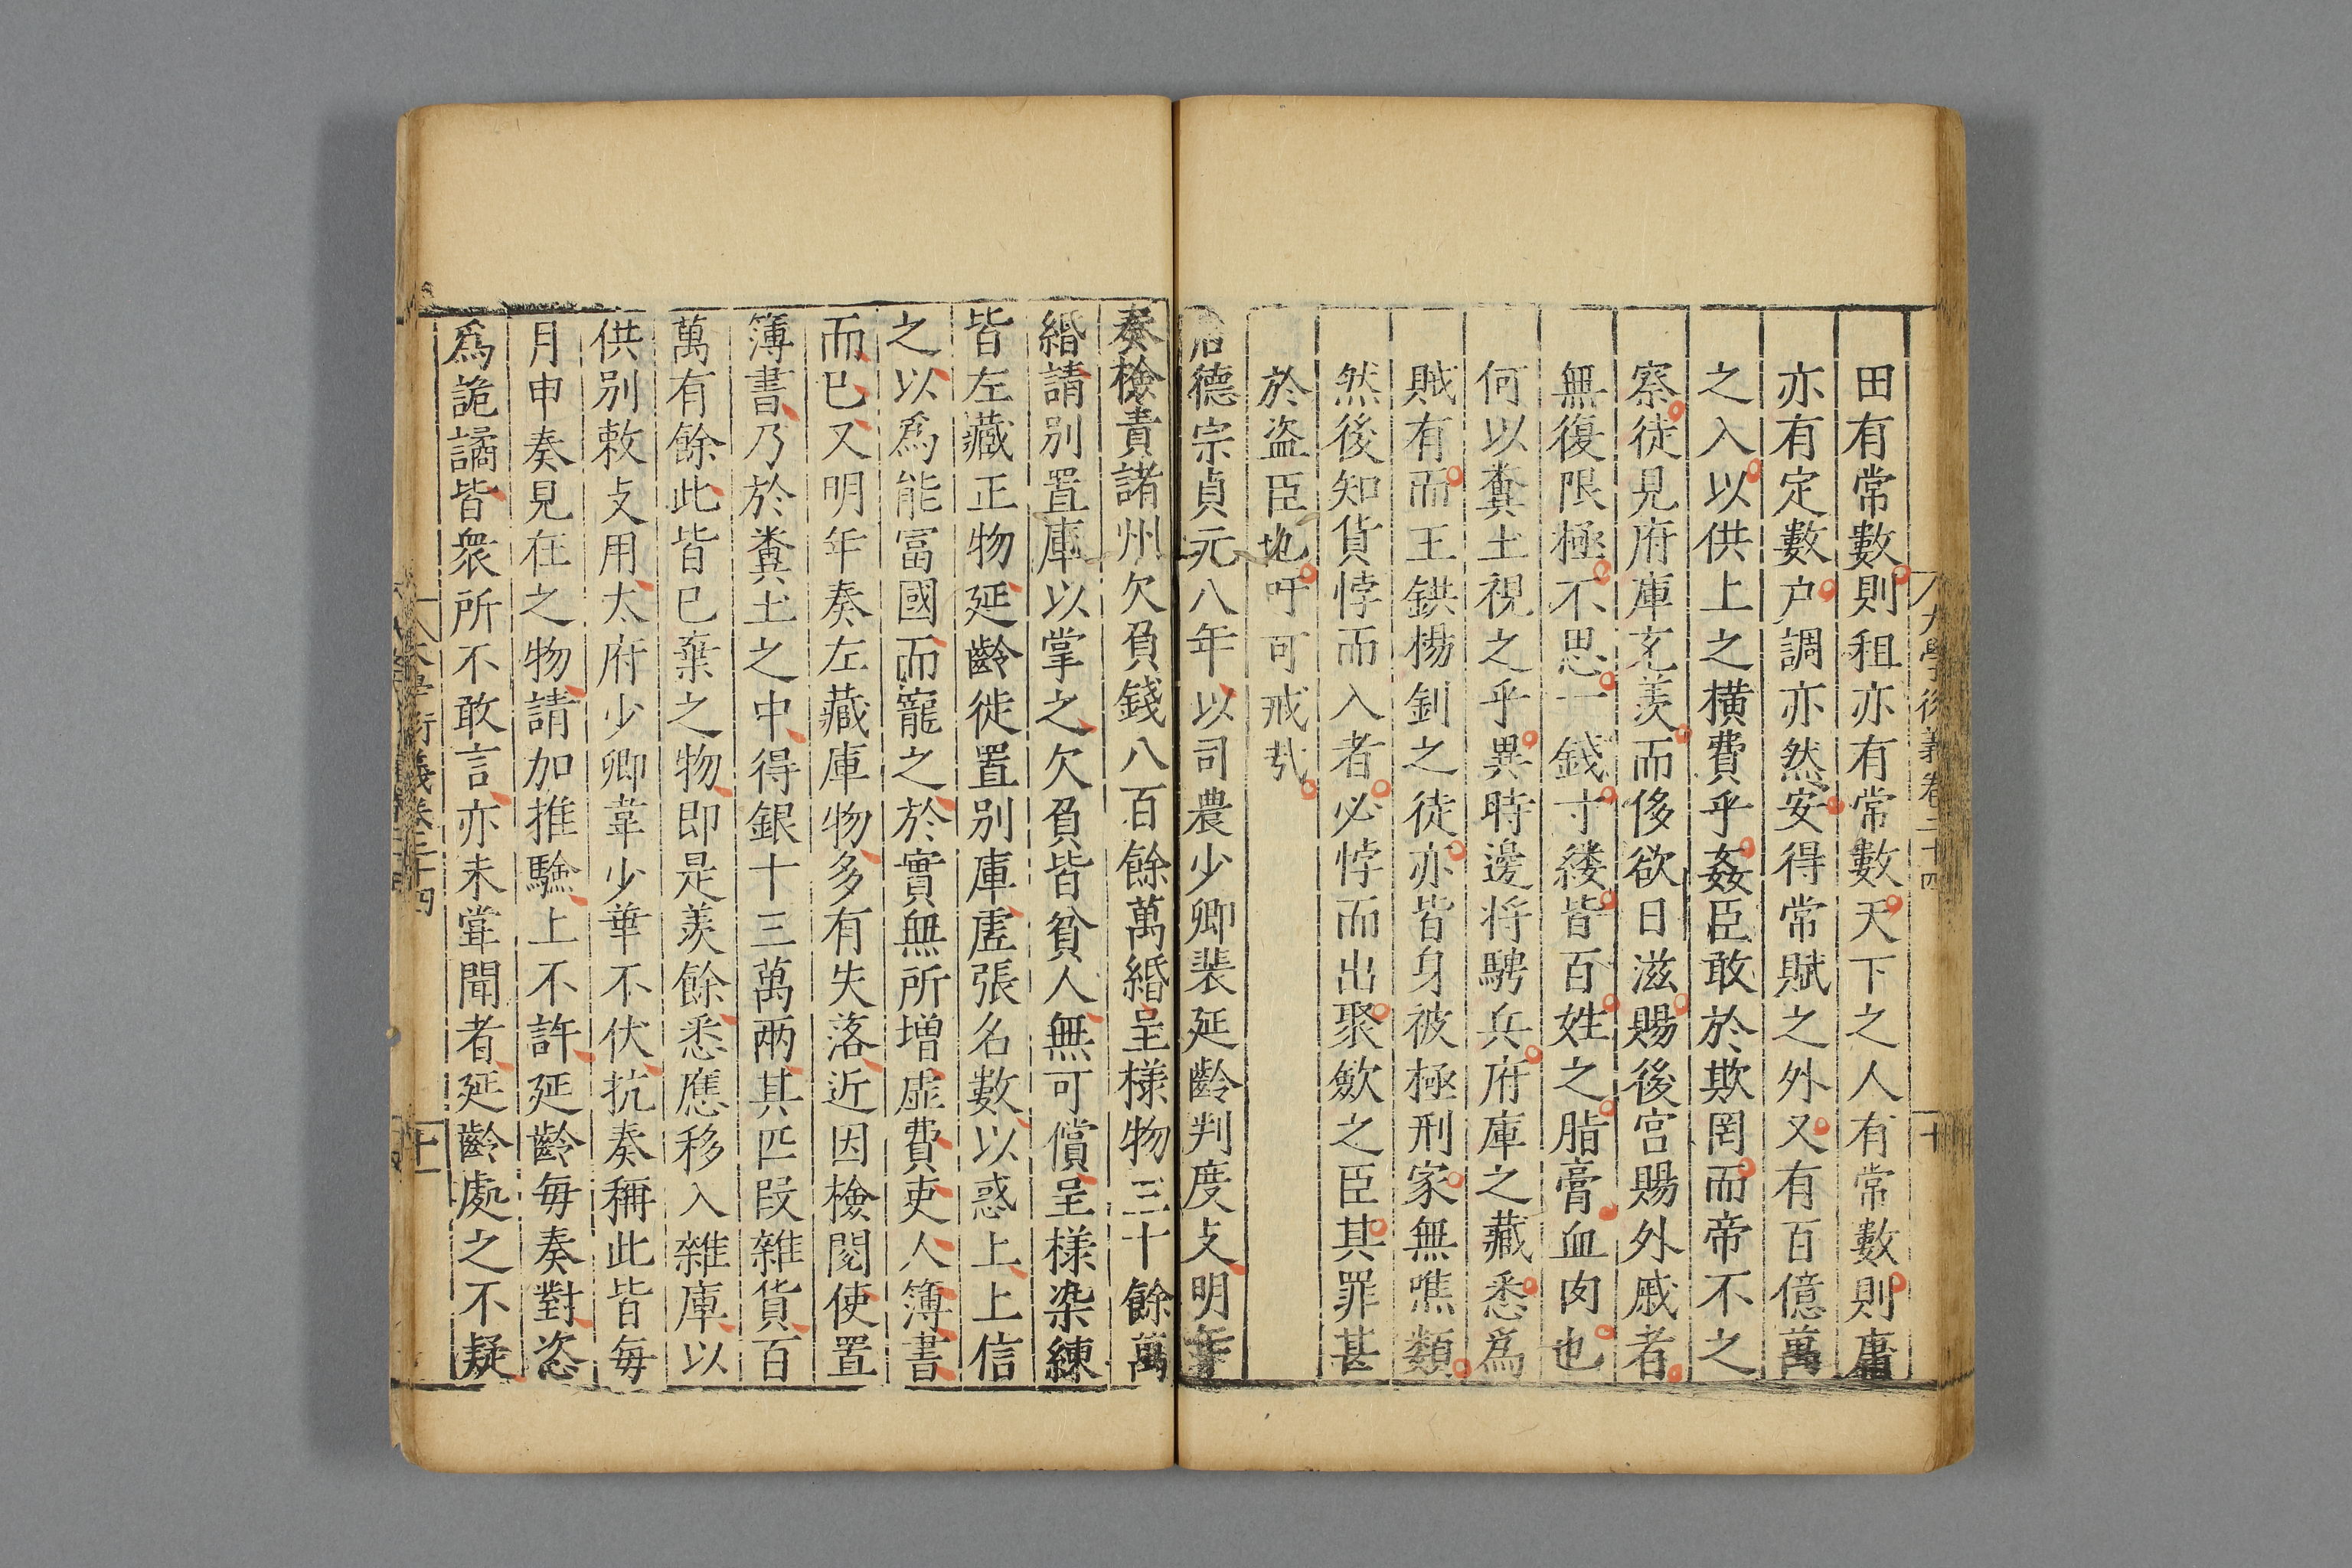 大學衍義卷二十四
十
田有常數則租亦有常數天下之人有常數則庸
亦有定數户調亦然安得常賦之外又有百億萬
之入以供上之横費乎姦臣敢於欺罔而帝不之
察徒見府庫充羨而侈欲日滋賜後宫賜外戚者
無復限極不思一錢寸縷皆百姓之脂膏血肉也
何以糞土視之乎異時邊将騁兵府庫之藏悉爲
賊有而王鉷楊釗之徒亦皆身被極刑家無噍類
然後知貨悖而入者必悖而出聚歛之臣其罪甚
於盗臣也吁可戒㢤
唐德宗貞元八年以司農少卿裴延齡判度支明年
奏檢責諸州欠負錢八百餘萬緡呈様物三十餘萬
緡請别置庫以掌之欠負皆貧人無可償呈樣染練
皆左藏正物延齡徙置别庫虚張名數以惑上上信
之以爲能富國而寵之於實無所增虚費吏人簿書
而已又明年奏左藏庫物多有失落近因檢閱使置
簿書乃於糞土之中得銀十三萬兩其匹段雜貨百
萬有餘此皆已棄之物即是羨餘悉應移入雜庫以
供别敕支用太府少卿韋少華不伏抗奏稱此皆每
月申奏見在之物請加推驗上不許延齡每奏對恣
爲詭譎皆衆所不敢言亦未甞聞者延齡處之不疑
大學衍義卷二十四
十一